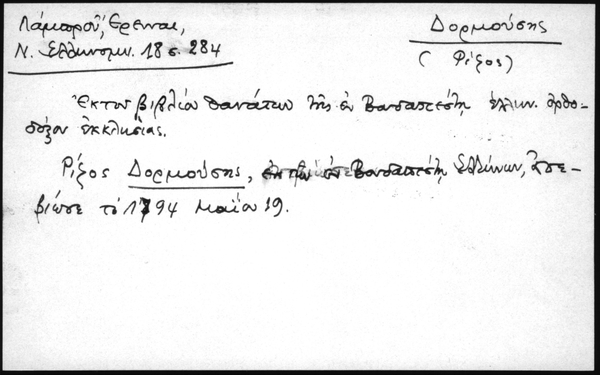 Λάμπρου, Ἔρευναι,
Ν. Ἑλληνομν. 18 σ. 284
Δορμούσης
(Ρίζος)
Ἐκ του βιβλίου θανάτων τῆς ἐν Βουδαπέστῃ ἑλλην. ὀρθο-
δόξου ἐκκλησίας.
Ρίζος Δορμούσης, ἐκ τῶν ἐν Βουδαπέστῃ Ἑλλήνων, ἀπε-
βίωσε τὸ 1794 Μαΐου 19.